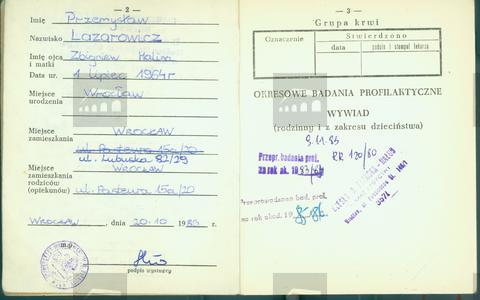 — 2 —
Imię Przemysław
Nazwisko Lazarowicz
Imię ojca i matki Zbigniew Halina
Data ur. 1 lipiec 1964r
Miejsce urodzenia Wrocław
Miejsce zamieszkania WROCŁAW
ul. Pasteura 15a/20
ul. Lubuska 82/29
Miejsce zamieszkania rodziców (opiekunów) WROCŁAW
ul. Pasteura 15a/20
WROCŁAW, dnia 20-10 1983 r.
podpis wystawcy
— 3 —
Grupa krwi
Oznaczenie
Stwierdzono
data
podpis i stempel lekarza
OKRESOWE BADANIA PROFILAKTYCZNE
WYWIAD
(rodzinny i z zakresu dzieciństwa)
Przepr. badania prof.
RR 120/80
za rok ak. 1983/84
Przeprowadzono bad. prof.
za rok akad. 19 85/86